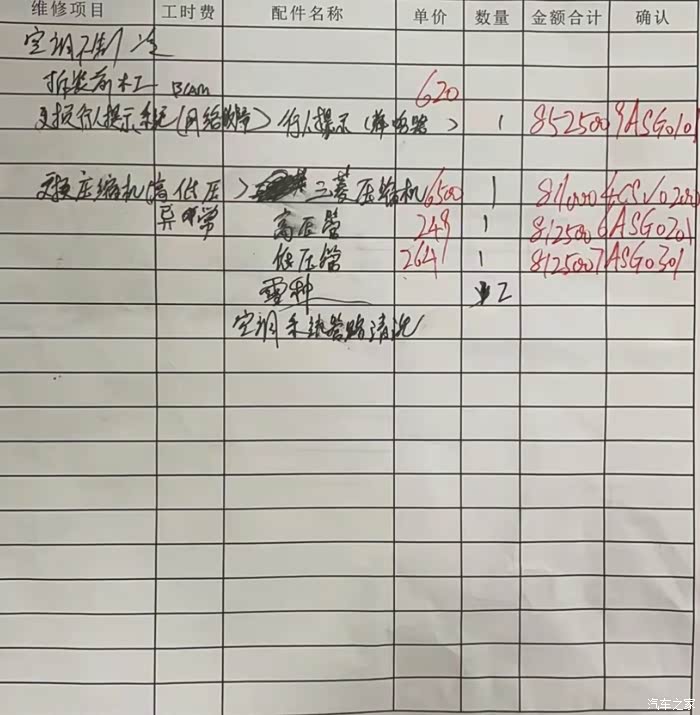 维修项目 工时费 配件名称 单价 数量 金额合计 确认
空调不制冷
拆装前杠 620
更换行人提示系统(网络故障) 行人提示(蜂鸣器) 1 8525009ASG0101
更换压缩机(高低压 三菱压缩机 6500 1 8110004CSV0200
异常) 高压管 249 1 8125006ASG0201
低压管 264 1 8125007ASG0301
雪种 2
空调系统管路清洗
汽车之家